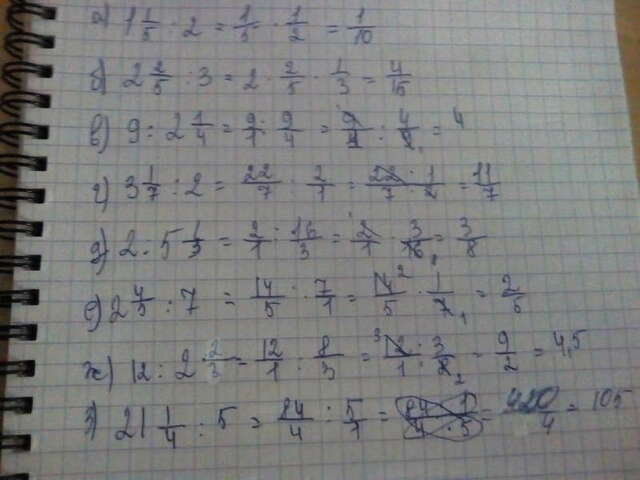 а) 1 1/5 : 2 = 1/5 · 1/2 = 1/10
б) 2 2/5 : 3 = 2 · 2/5 · 1/3 = 4/15
в) 9 : 2 1/4 = 9/1 : 9/4 = 9/1 : 4/9 = 4
г) 3 1/7 : 2 = 22/7 : 2/1 = 22 · 1/7 · 2 = 11/7
д) 2 : 5 1/3 = 2/1 : 16/3 = 2/1 · 3/16 = 3/8
е) 2 4/5 : 7 = 14/5 : 7/1 = 14/5 · 1/7 = 2/5
ж) 12 : 2 2/3 = 12/1 : 8/3 = 12/1 · 3/8 = 9/2 = 4,5
з) 21 1/4 : 5 = 84/4 : 5/1 = = 420/4 = 105